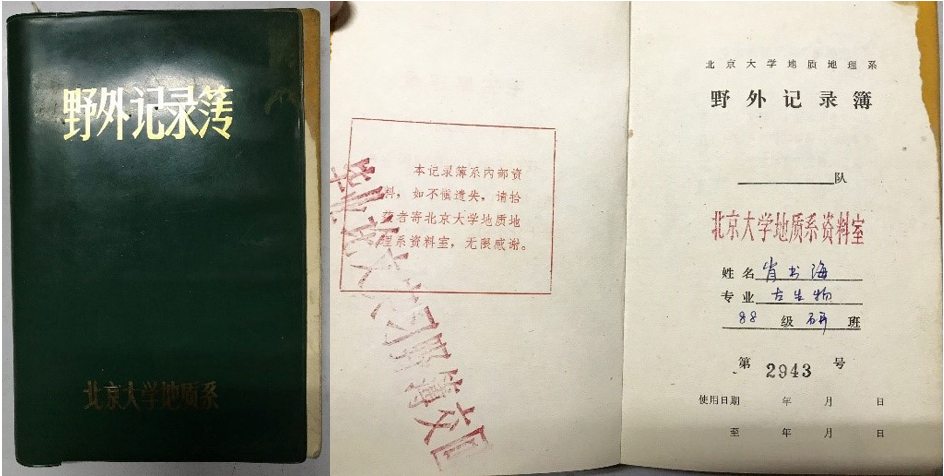 野外记录簿
北京大学地质系
本记录簿系内部资
料，如不慎遗失，请拾
获者寄北京大学地质地
理系资料室，无限感谢。
簿交回
北京大学地质地理系
野外记录簿
队
北京大学地质系资料室
姓名 肖书海
专业 古生物
88 级 研 班
第 2943 号
使用日期 年 月 日
至 年 月 日